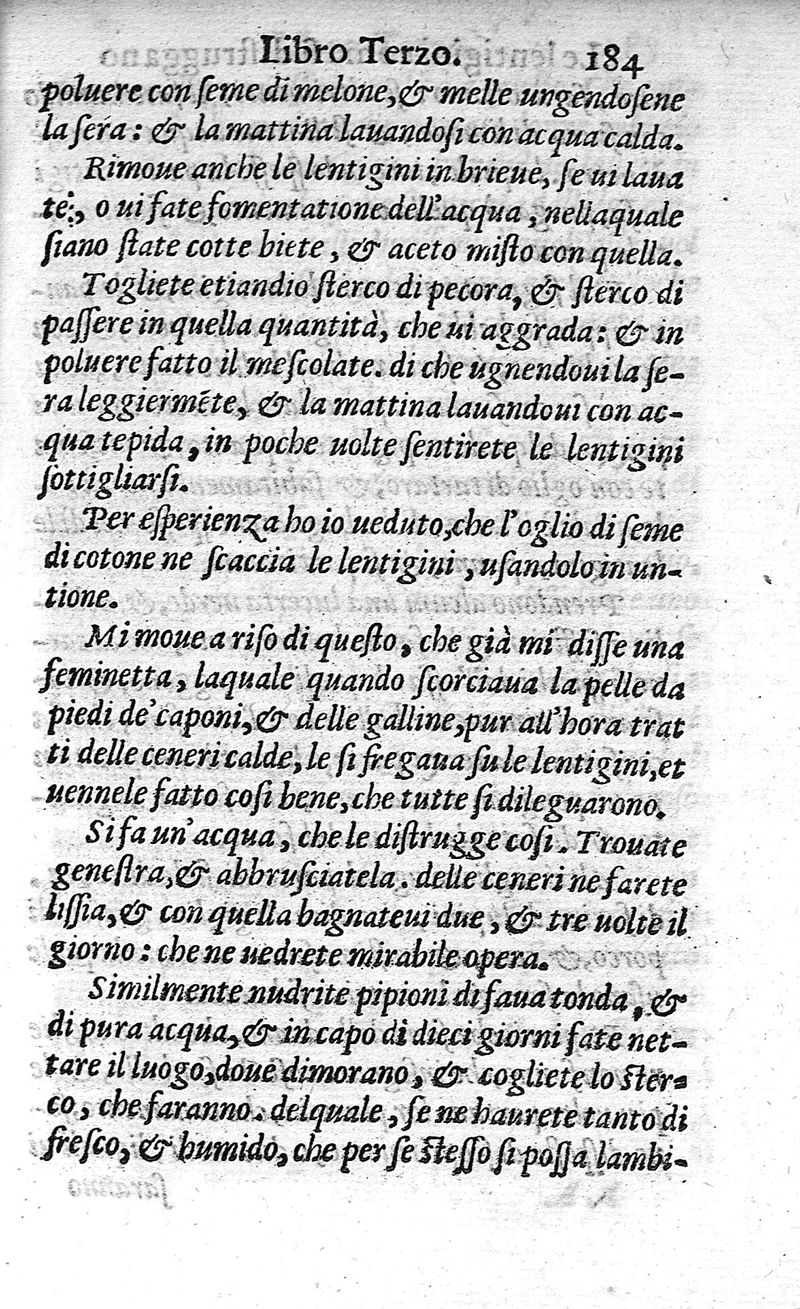 Libro Terzo. 184
poluere con ſeme di melone, & melle ungendoſene
la ſera: & la mattina lauandoſi con acqua calda.
Rimoue anche le lentigini in brieue, ſe ui laua
te:, o ui fate fomentatione dell'acqua, nellaquale
ſiano ſtate cotte biete, & aceto miſto con quella.
Togliete etiandio ſterco di pecora, & ſterco di
paſſere in quella quantità, che ui aggrada: & in
poluere fatto il meſcolate. di che ugnendoui la ſe-
ra leggiermẽte, & la mattina lauandoui con ac-
qua tepida, in poche uolte ſentirete le lentigini
ſottigliarſi.
Per eſperienza ho io ueduto, che l'oglio di ſeme
di cotone ne ſcaccia le lentigini, uſandolo in un-
tione.
Mi moue a riſo di queſto, che già mi diſſe una
feminetta, laquale quando ſcorciaua la pelle da
piedi de'caponi, & delle galline, pur all'hora trat
ti delle ceneri calde, le ſi fregaua ſu le lentigini, et
uennele fatto coſi bene, che tutte ſi dileguarono.
Si fa un'acqua, che le diſtrugge coſi. Trouate
geneſtra, & abbruſciatela. delle ceneri ne farete
liſſia, & con quella bagnateui due, & tre uolte il
giorno: che ne uedrete mirabile opera.
Similmente nudrite pipioni di faua tonda, &
di pura acqua, & in capo di dieci giorni fate net-
tare il luogo, doue dimorano, & cogliete lo ſter-
co, che faranno. delquale, ſe ne haurete tanto di
freſco, & humido, che per ſe ſteſſo ſi poſſa lambi-